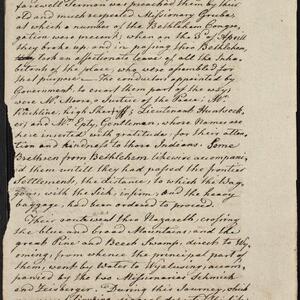 farewell Sermon was preached them by their
old and much respected Missionary Grube
at which a number of the Bethlehem Congre
gation were present; when on the 3d of April
they broke up, and in passing thro Bethlehem,
took an affectionate leave of all the Inha
bitants of the place, who were assembled for
that purpose — The conductors appointed by
Government, to escort them part of the way;
were Mr. Moore, a Justice of the Peace; Mr.
Kichline, high Sheriff; Lieutenant Hundseck
er; and Mr. Epty, Gentleman, whose Names are
here inserted with gratitude, for their atten
tion and kindness to those Indians. Some
Brethren from Bethlehem likewise accompani
ed them untill they had passed the frontier
Settlement, the distance, to which the Wag
gons, with the Sick, infirm, and the heavy
baggage, had been ordered to proceed.
Their route went thro Nazareth, crossing
the blue and Broad Mountains, and the
great Pine and Beech Swamp, direct to Wy
oming, from whence the principal part of
them, went by Water to Wyalusing, accom
panied by the two Missionaries Schmick
and Zeisberger. During this Journey, which